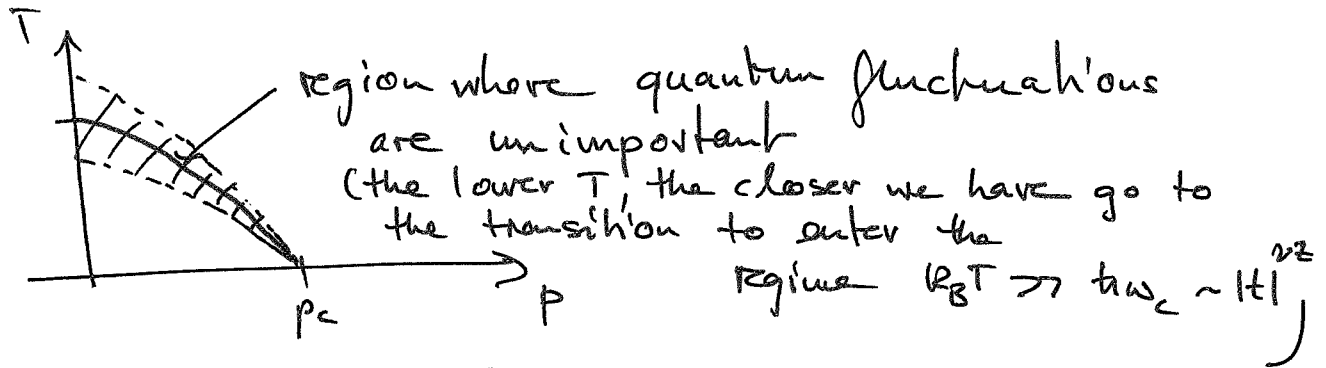 T
region where quantum fluctuations
are unimportant
(the lower T, the closer we have go to
the transition to enter the
regime k_BT >> ħω_c ~ |t|^{νz})
p_c
p